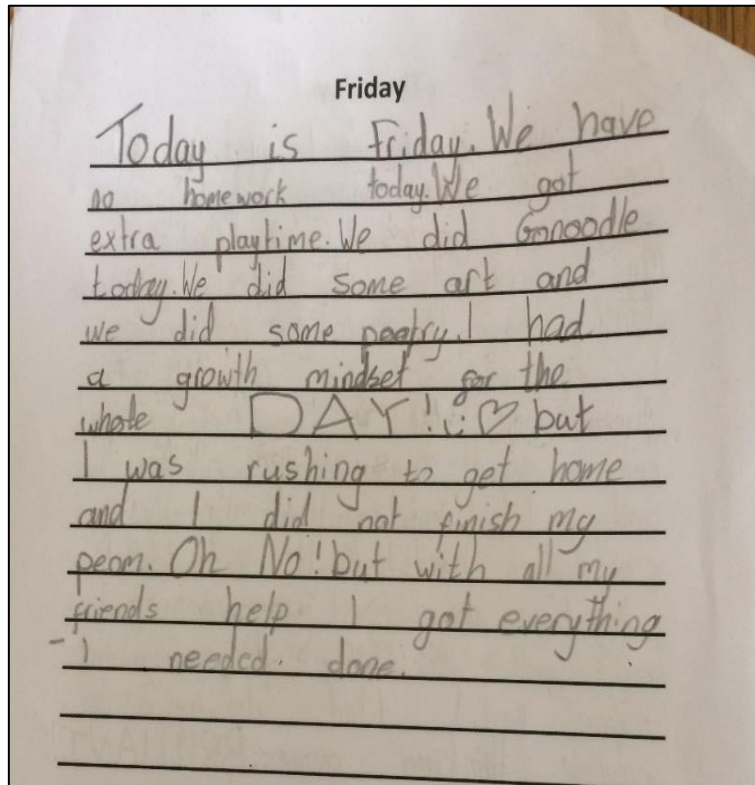 Friday
Today is Friday. We have
no homework today. We got
extra playtime. We did Gonoodle
today. We did some art and
we did some poetry. I had
a growth mindset for the
whole DAY! but
I was rushing to get home
and I did not finish my
peom. Oh No! but with all my
friends help I got everything
I needed. done.